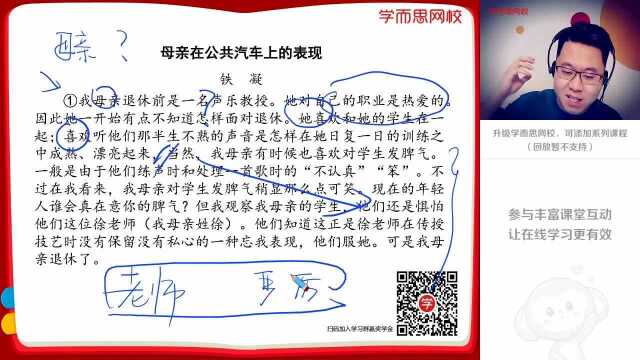 学而思网校
母亲？
母亲在公共汽车上的表现
铁 凝
①我母亲退休前是一名声乐教授。她对自己的职业是热爱的。
因此她一开始有点不知道怎样面对退休。她喜欢和她的学生在一
起；喜欢听他们那半生不熟的声音是怎样在她日复一日的训练之
中成熟、漂亮起来。当然、我母亲有时候也喜欢对学生发脾气。
一般是由于他们练声时和处理一首歌时的“不认真”“笨”。不
过在我看来，我母亲对学生发脾气稍显那么点可笑。现在的年轻
人谁会真在意你的脾气？但我观察我母亲的学生，他们还是惧怕
他们这位徐老师（我母亲姓徐）。他们知道这正是徐老师在传授
技艺时没有保留没有私心的一种忘我表现，他们服她。可是我母
亲退休了。
老师
学
扫码加入学习群赢奖学金
学而思网校
升级学而思网校，可添加系列课程
（回放暂不支持）
参与丰富课堂互动
让在线学习更有效